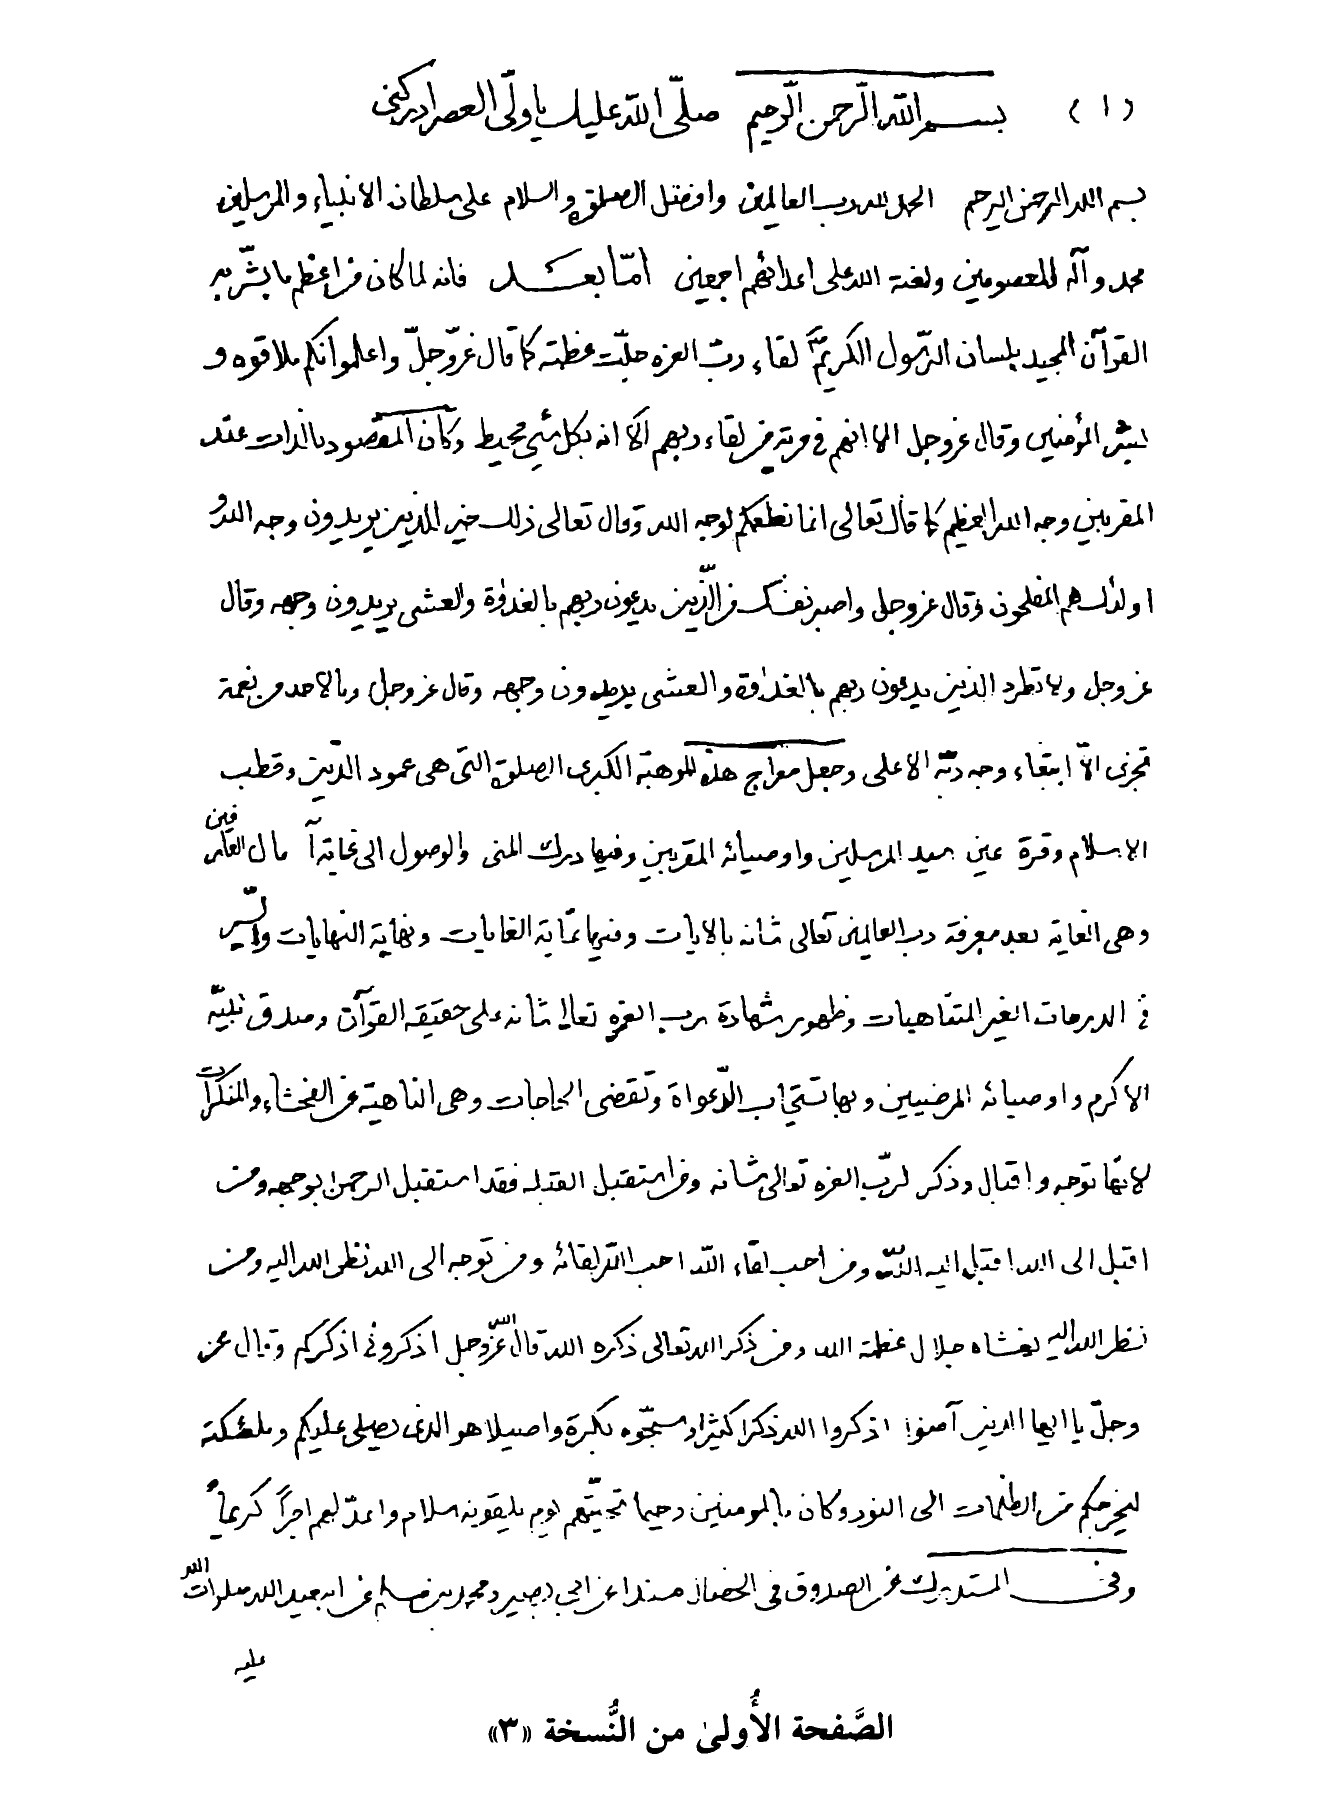 (١) بسم الله الرّحمن الرّحيم صلّى الله عليك يا ولّى العصر ادركنى
بسم الله الرحمن الرحيم الحمد لله رب العالمين وافضل الصلوة والسلام على سلطان الانبياء والمرسلين
محمد وآله المعصومين ولعنة الله على اعدائهم اجمعين امّا بعد فانه لما كان من اعظم ما بشّر به
القرآن المجيد بلسان الرّسول الكريم لقاء ربّ العزه جلّت عظمته كما قال عزّ وجلّ واعلموا انكم ملاقوه و
بشر المؤمنين وقال عز وجل الا انهم فى مرية من لقاء ربهم الا انه بكل شئ محيط وكان المقصود بالذات عند
المقربين وجه الله العظيم كما قال تعالى انما نطعمكم لوجه الله وقال تعالى ذلك خير للذين يريدون وجه الله و
اولئك هم المفلحون وقال عز وجل واصبر نفسك مع الّذين يدعون ربهم بالغدوة والعشى يريدون وجهه وقال
عز وجل ولا تطرد الذين يدعون ربهم بالغدوة والعشى يريدون وجهه وقال عز وجل وما لاحد من نعمة
تجزى الاّ ابتغاء وجه ربّه الاعلى وجعل معراج هذه الموهبة الكبرى الصلوة التى هى عمود الدّين وقطب
الاسلام وقرة عين سيد المرسلين واوصيائه المقربين وفيها درك المنى والوصول الى غاية آمال العارفين
وهى الغاية بعد معرفة رب العالمين تعالى شانه بالايات وفيها غاية الغايات ونهاية النهايات والسّير
فى الدرجات الغير المتناهيات وظهور شهادة رب العزه تعالى شانه على حقيقه القرآن وصدق نبيّه
الاكرم واوصيائه المرضيين وبها تستجاب الدّعواة وتقضى الحاجات وهى الناهية عن الفحشاء والمنكرات
لانّها توجه واقبال وذكر لربّ العزه تعالى شانه ومن استقبل القبله فقد استقبل الرحمن بوجهه ومن
اقبل الى الله اقبل اليه اللّه ومن احب لقاء اللّه احب اللّه لقائه ومن توجه الى الله نظر الله اليه ومن
نظر الله اليه يغشاه جلال عظمة الله ومن ذكر الله تعالى ذكره الله قال اللّه عزّ وجل اذكرونى اذكركم وقال عز
وجلّ يا ايها الذين آمنوا اذكروا الله ذكرا كثيرا وسبّحوه بكرة واصيلا هو الذى يصلى عليكم وملئكته
ليخرجكم من الظلمات الى النور وكان بالمومنين رحيما تحيّتهم يوم يلقونه سلام واعدّ لهم اجراً كريماً
وفى المستدرك عن الصدوق فى الخصال مسندا عن ابي بصير ومحمد بن مسلم عن ابى عبد الله صلوات الله
عليه
الصَّفحة الأُولىٰ من النُّسخة «٣»